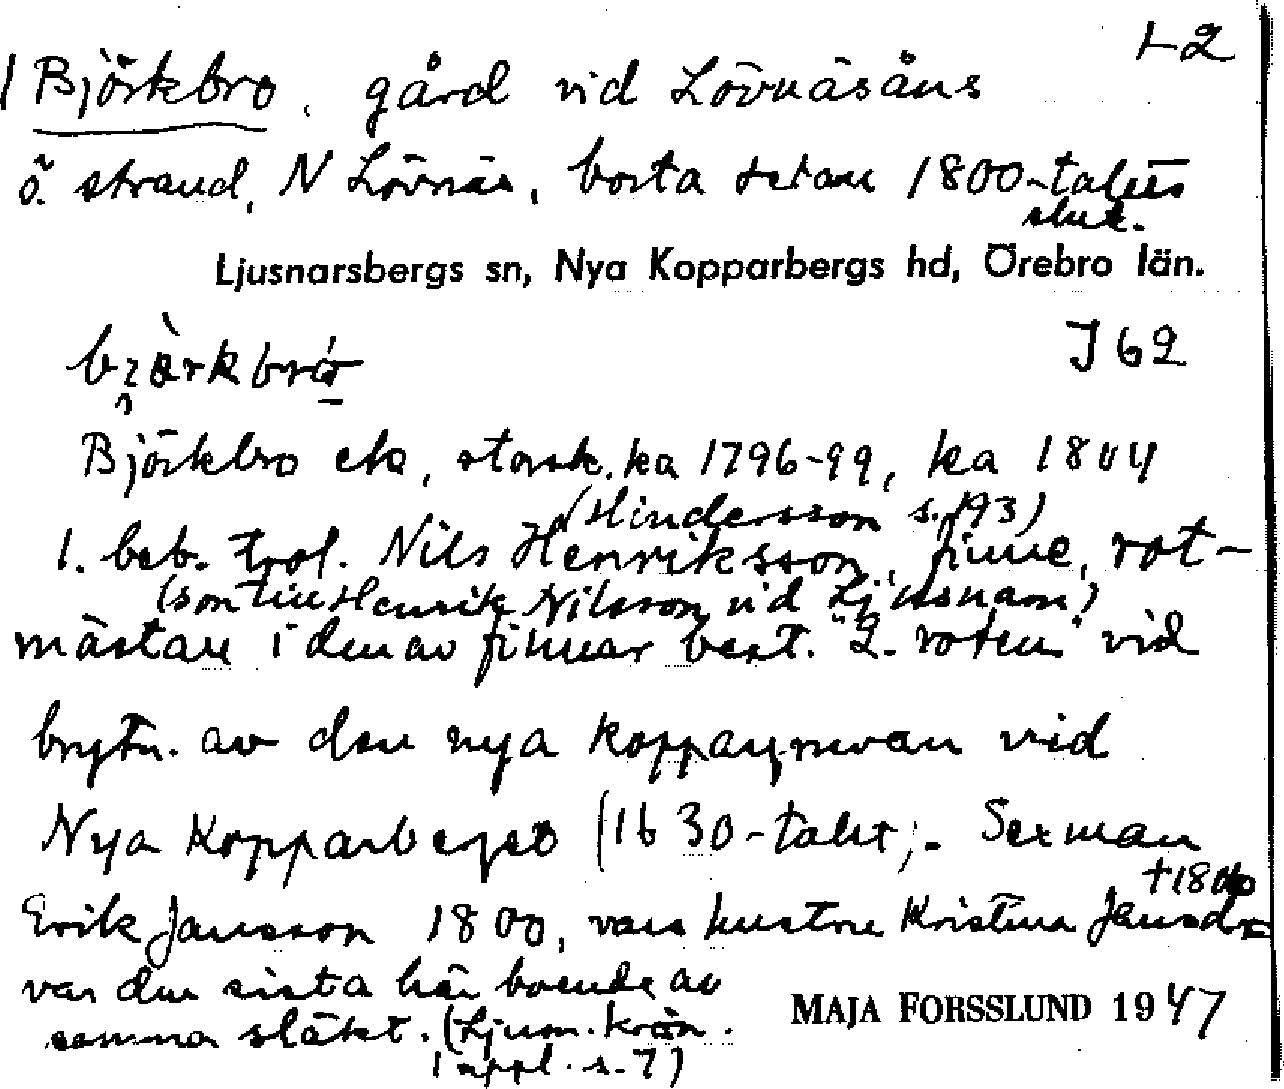 1-2
1 Björkbro, gård vid Lövnäsåns
ö. strand, N Lövnäs, borta sedan 1800-talets
slut.
Ljusnarsbergs sn, Nya Kopparbergs hd, Örebro län.
J 62
Björkbro ek, storsk.ka 1796-99, ka 1804
(Hindersson s. 193)
1. beb. trol. Nils Henriksson, finne, rot-
(son till Henrik Nilsson vid Ljusnarn)
mästare i den av finnar best. "2. roten" vid
brytn. av den nya koppargruvan vid
Nya Kopparberget (1630-talet). Sexman
†1806
Erik Jansson 1800, vars hustru Kristina Jansdr
var den sista här boende av
samma släkt. (Ljusn. krön.
1 uppl. s. 7)
MAJA FORSSLUND 1947